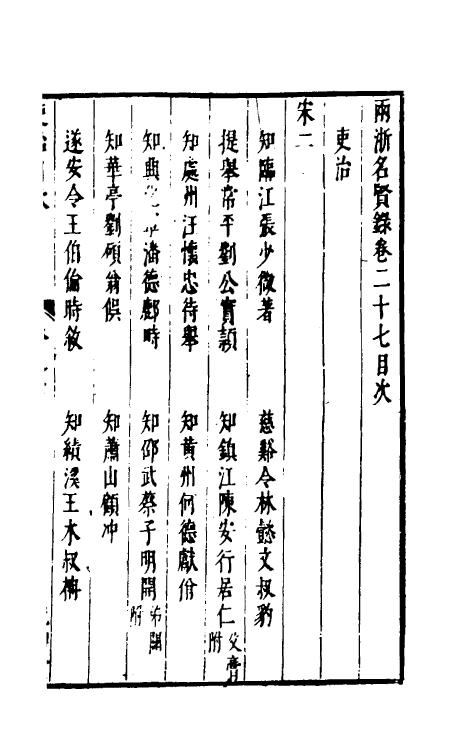 兩浙名賢錄卷二十七目次
吏治
宋二
知臨江張少微著
慈谿令林懿文叔豹
提舉常平劉公實穎
知鎮江陳安行居仁父膏附
知處州汪懷忠待舉
知黃州何德獻佾
知興化軍潘德鄜時
知邵武蔡子明開弟闢附
知華亭劉碩翁俁
知蕭山顧沖
遂安令王伯倫時敘
知績溪王木叔柟